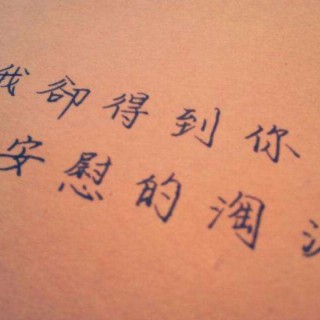 我卻得到你
安慰的淘